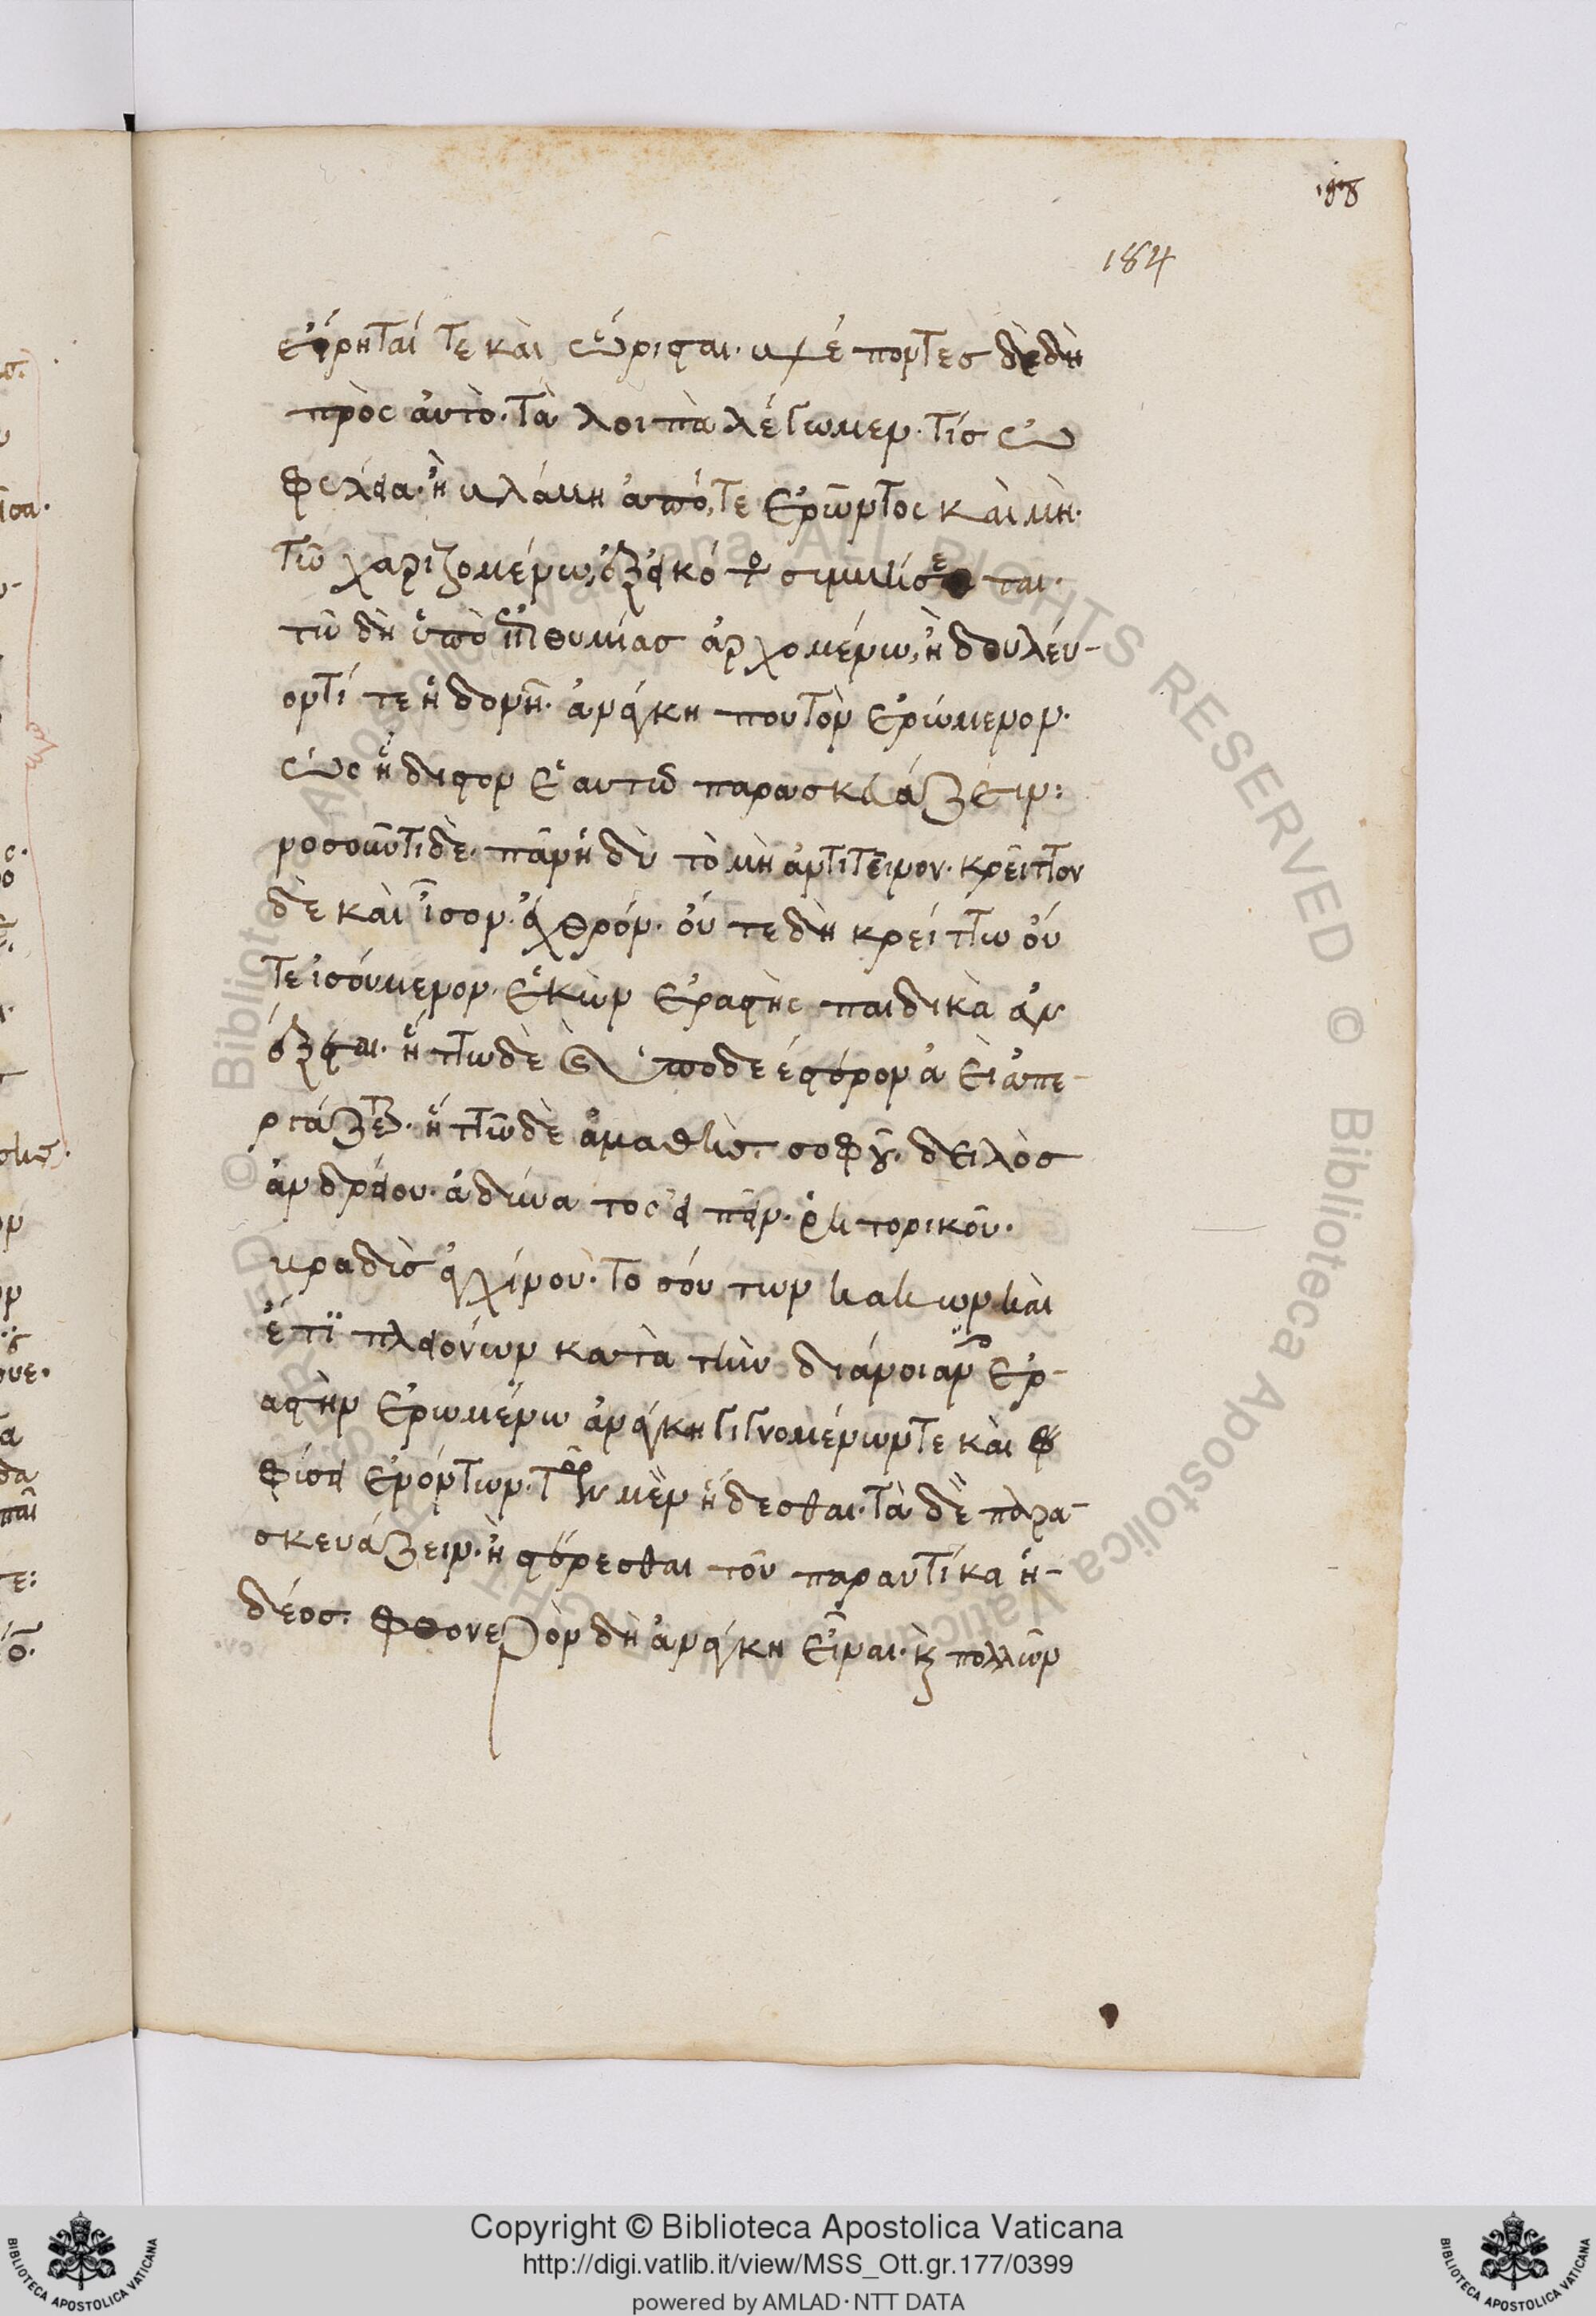 εἴρηταί τε καὶ ὥρισται. βλέποντες δὲ δὴ
πρὸς αὐτὸ. τὰ λοιπὰ λέγωμεν. τίς ὠ
φελεία. ἢ βλάβη ἀπό, τε ἐρῶντος καὶ μὴ.
τῶ χαριζομένω, ἐξ εἰκότος συμβήσεται.
τῶ δὴ ὑπὸ ἐπιθυμίας ἀρχομένω, ἢ δουλεύ-
οντί τε ἡδονῆ. ἀνάγκη που τὸν ἐρώμενον.
ὡς ἥδιστον ἑαυτῶ παρασκευάζειν:
νοσοῦντι δὲ. πᾶν ἡδὺ τὸ μὴ ἀντιτεῖνον. κρεῖττον
δὲ καὶ ἴσον. ἐχθρόν. οὔ τε δὴ κρείττω οὔ
τε ἰσούμενον. ἑκὼν ἐραστὴς παιδικὰ ἀν
έξεται. ἥττω δὲ καὶ ὑποδεέστερον ἀεὶ ἀπε-
ργάζεται. ἥττω δὲ ἀμαθὴς. σοφοῦ. δειλὸς
ἀνδρείου. ἀδύνατος εἰπεῖν. ῥητορικοῦ.
βραδὺς ἀγχίνου. τοσούτων κακῶν καὶ
ἔτι πλειόνων κατὰ τὴν διάνοιαν ἐρ-
αστὴν ἐρωμένω ἀνάγκη γιγνομένων τε καὶ φ
φύσει ἐνόντων. τῶν μὲν ἥδεσθαι. τὰ δὲ παρα-
σκευάζειν. ἢ στέρεσθαι τοῦ παραυτίκα ἡ-
δέος. φθονερὸν δὴ ἀνάγκη εἶναι. καὶ πολλῶν
184
Copyright © Biblioteca Apostolica Vaticana
http://digi.vatlib.it/view/MSS_Ott.gr.177/0399
powered by AMLAD·NTT DATA